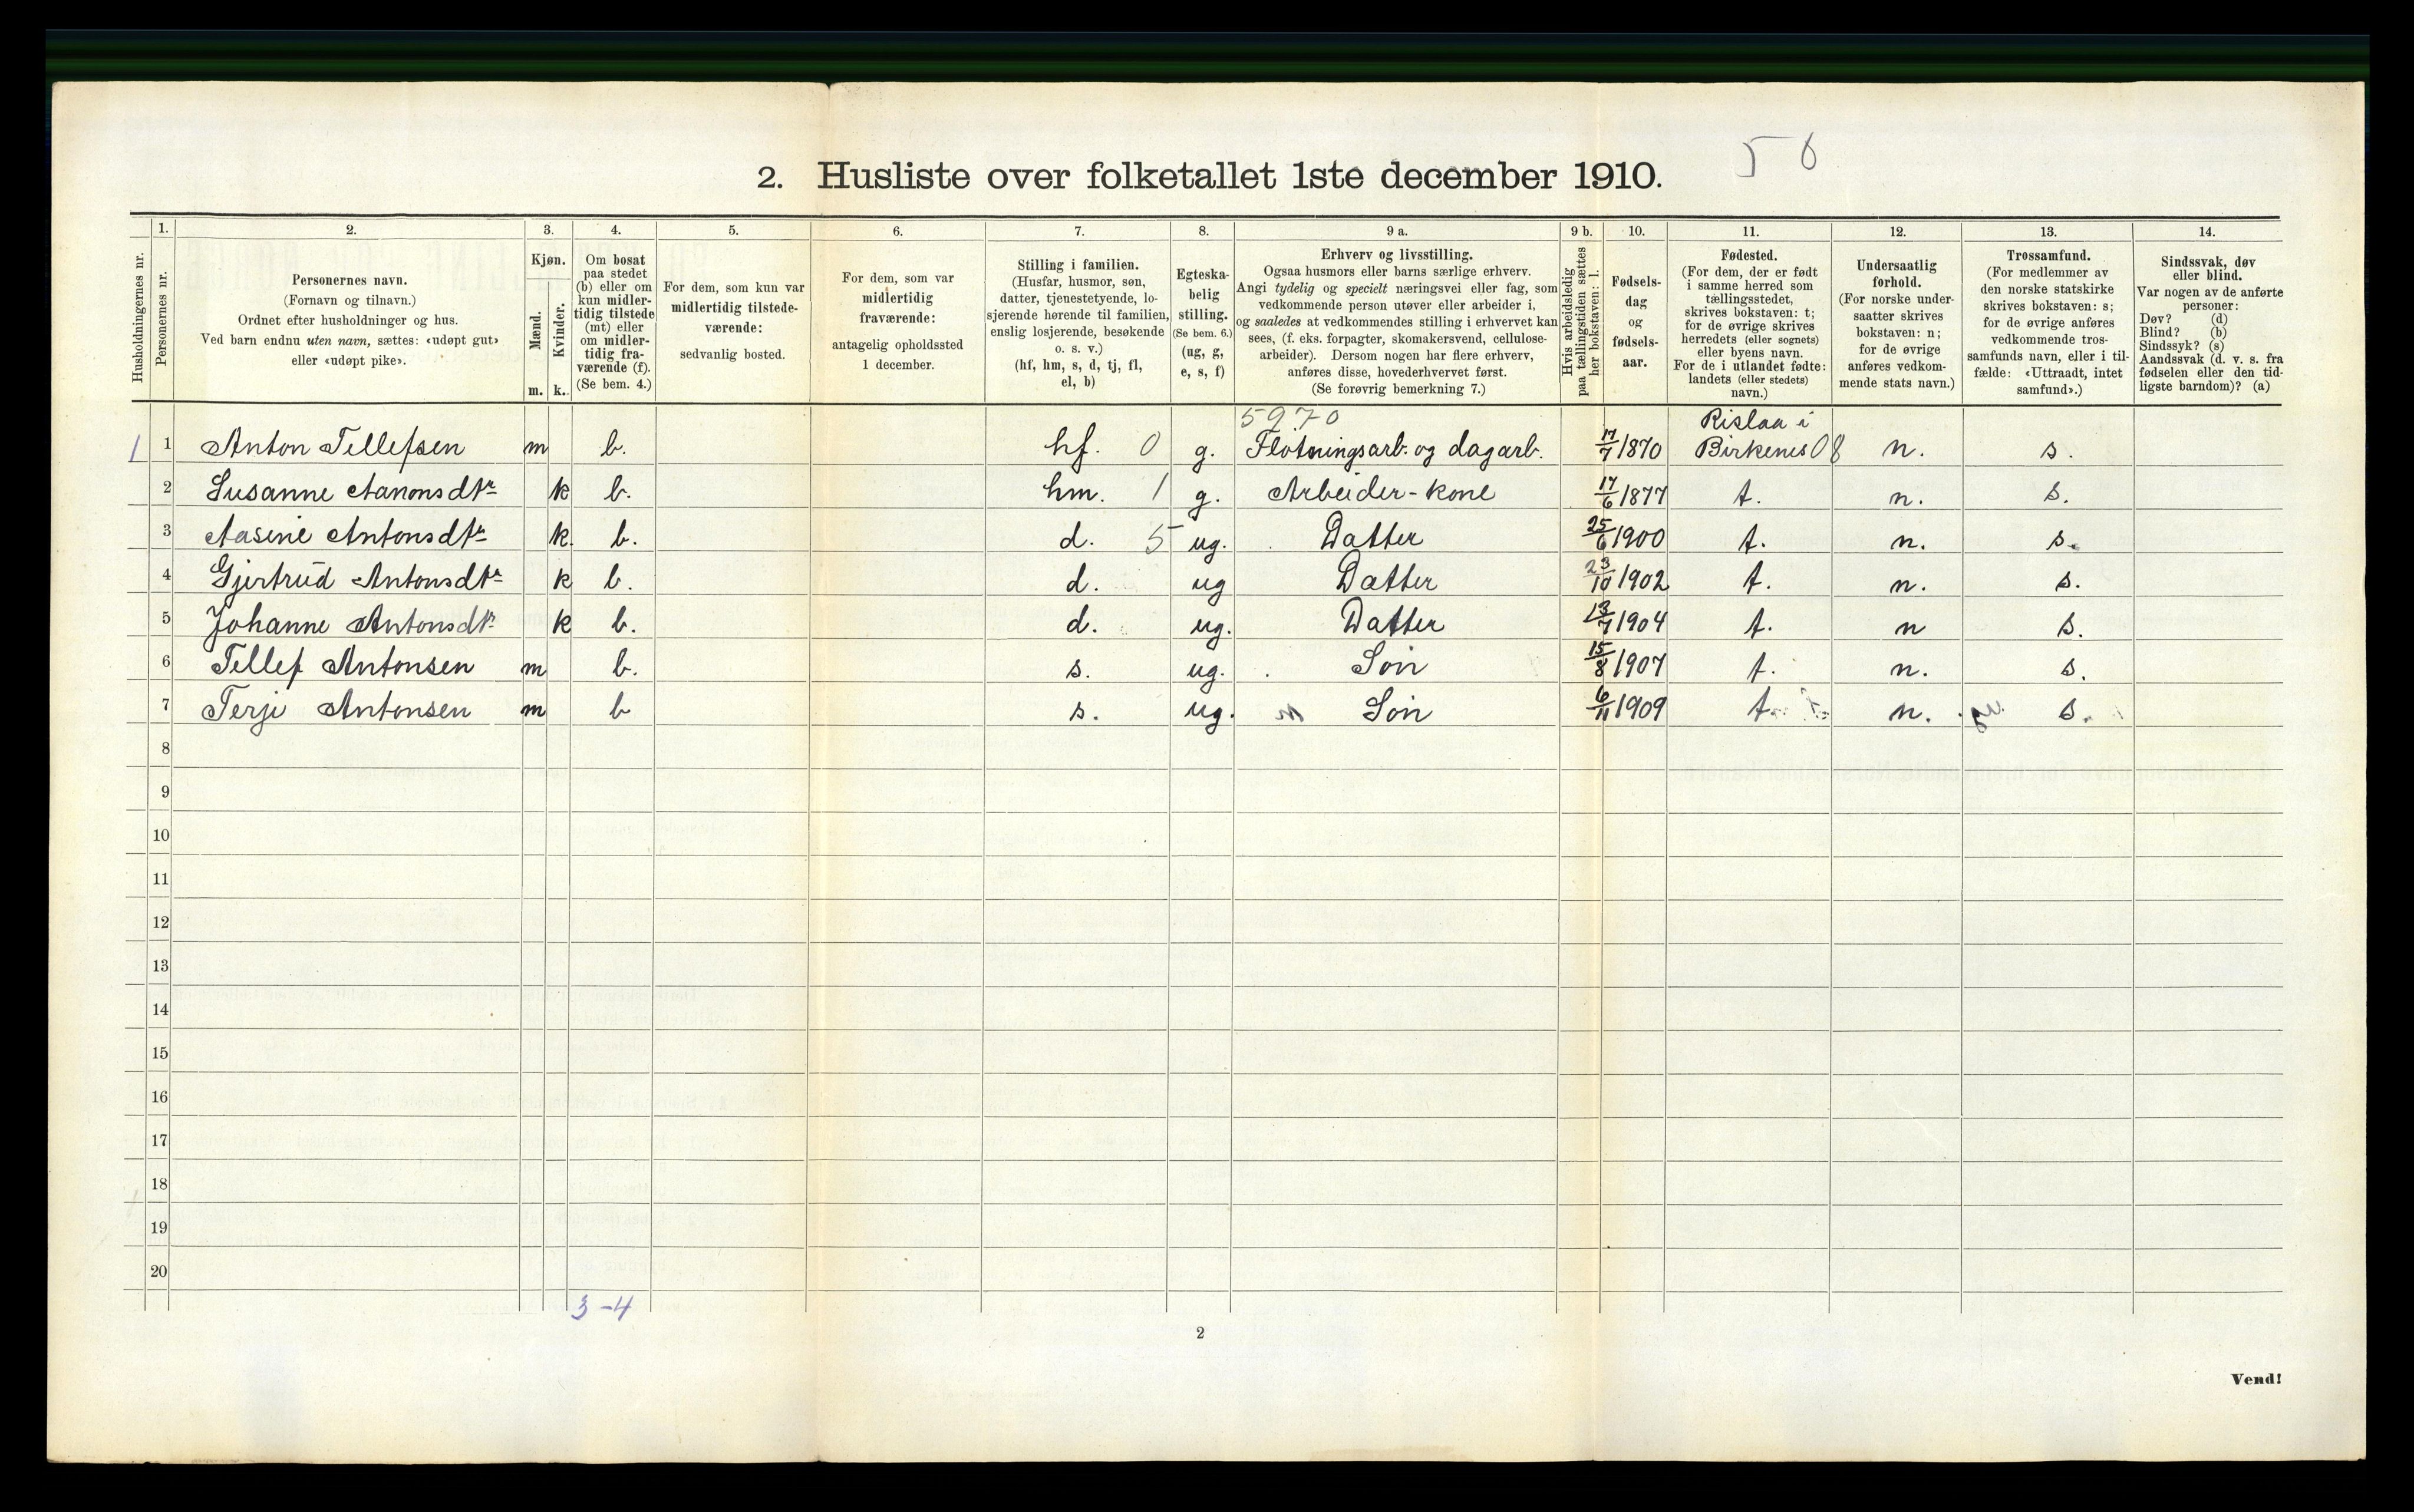 5 6
2. Husliste over folketallet 1ste december 1910.
Husholdningernes nr.
1. Personernes nr.
2. Personernes navn.
(Fornavn og tilnavn.)
Ordnet efter husholdninger og hus.
Ved barn endnu uten navn, sættes: «udøpt gut»
eller «udøpt pike».
3. Kjøn.
Mænd. m.
Kvinder. k.
4. Om bosat
paa stedet
(b) eller om
kun midler-
tidig tilstede
(mt) eller
om midler-
tidig fra-
værende (f).
(Se bem. 4.)
5. For dem, som kun var
midlertidig tilstede-
værende:
sedvanlig bosted.
6. For dem, som var
midlertidig
fraværende:
antagelig opholdssted
1 december.
7. Stilling i familien.
(Husfar, husmor, søn,
datter, tjenestetyende, lo-
sjerende hørende til familien,
enslig losjerende, besøkende
o. s. v.)
(hf, hm, s, d, tj, fl,
el, b)
8. Egteska-
belig
stilling.
(Se bem. 6.)
(ug, g,
e, s, f)
9 a. Erhverv og livsstilling.
Ogsaa husmors eller barns særlige erhverv.
Angi tydelig og specielt næringsvei eller fag, som
vedkommende person utøver eller arbeider i,
og saaledes at vedkommendes stilling i erhvervet kan
sees, (f. eks. forpagter, skomakersvend, cellulose-
arbeider). Dersom nogen har flere erhverv,
anføres disse, hovederhvervet først.
(Se forøvrig bemerkning 7.)
9 b. Hvis arbeidsledig
paa tællingstiden sættes
her bokstaven: l.
10. Fødsels-
dag
og
fødsels-
aar.
11. Fødested.
(For dem, der er født
i samme herred som
tællingsstedet,
skrives bokstaven: t;
for de øvrige skrives
herredets (eller sognets)
eller byens navn.
For de i utlandet fødte:
landets (eller stedets)
navn.)
12. Undersaatlig
forhold.
(For norske under-
saatter skrives
bokstaven: n;
for de øvrige
anføres vedkom-
mende stats navn.)
13. Trossamfund.
(For medlemmer av
den norske statskirke
skrives bokstaven: s;
for de øvrige anføres
vedkommende tros-
samfunds navn, eller i til-
fælde: «Uttraadt, intet
samfund».)
14. Sindssvak, døv
eller blind.
Var nogen av de anførte
personer:
Døv? (d)
Blind? (b)
Sindssyk? (s)
Aandssvak (d. v. s. fra
fødselen eller den tid-
ligste barndom)? (a)
5970 Rislaa i
1 1 Anton Tellefsen m b. hf. 0 g. Fløtningsarb. og dagarb. 17/7 1870 Birkenes 08 n. s.
2 Susanne Aanonsdtr k b. hm. 1 g. Arbeider-kone 17/6 1877 t. n. s.
3 Aasene Antonsdtr k. b. d. 5 ug. Datter 25/6 1900 t. n. s.
4 Gjertrud Antonsdtr k b. d. ug Datter 23/10 1902 t. n. s.
5 Johanne Antonsdtr k b. d. ug. Datter 13/7 1904 t. n s.
6 Tellef Antonsen m b. s. ug. Søn 15/8 1907 t. n. s.
7 Terje Antonsen m b s. ug. Søn 6/11 1909 t. n. s.
8
9
10
11
12
13
14
15
16
17
18
19
20
3-4
2
Vend!